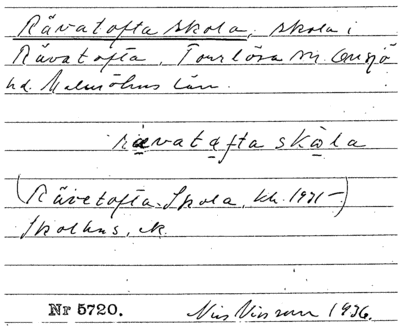 Rävatofta skola, skola i
Rävatofta, Tourlösa sn. Onsjö
hd. Malmöhus län.
rävatofta skola
(Rävetofta-Skola, kb. 1931-)
Skolhus, ek.
Nr 5720. Nils Nilsson 1936.